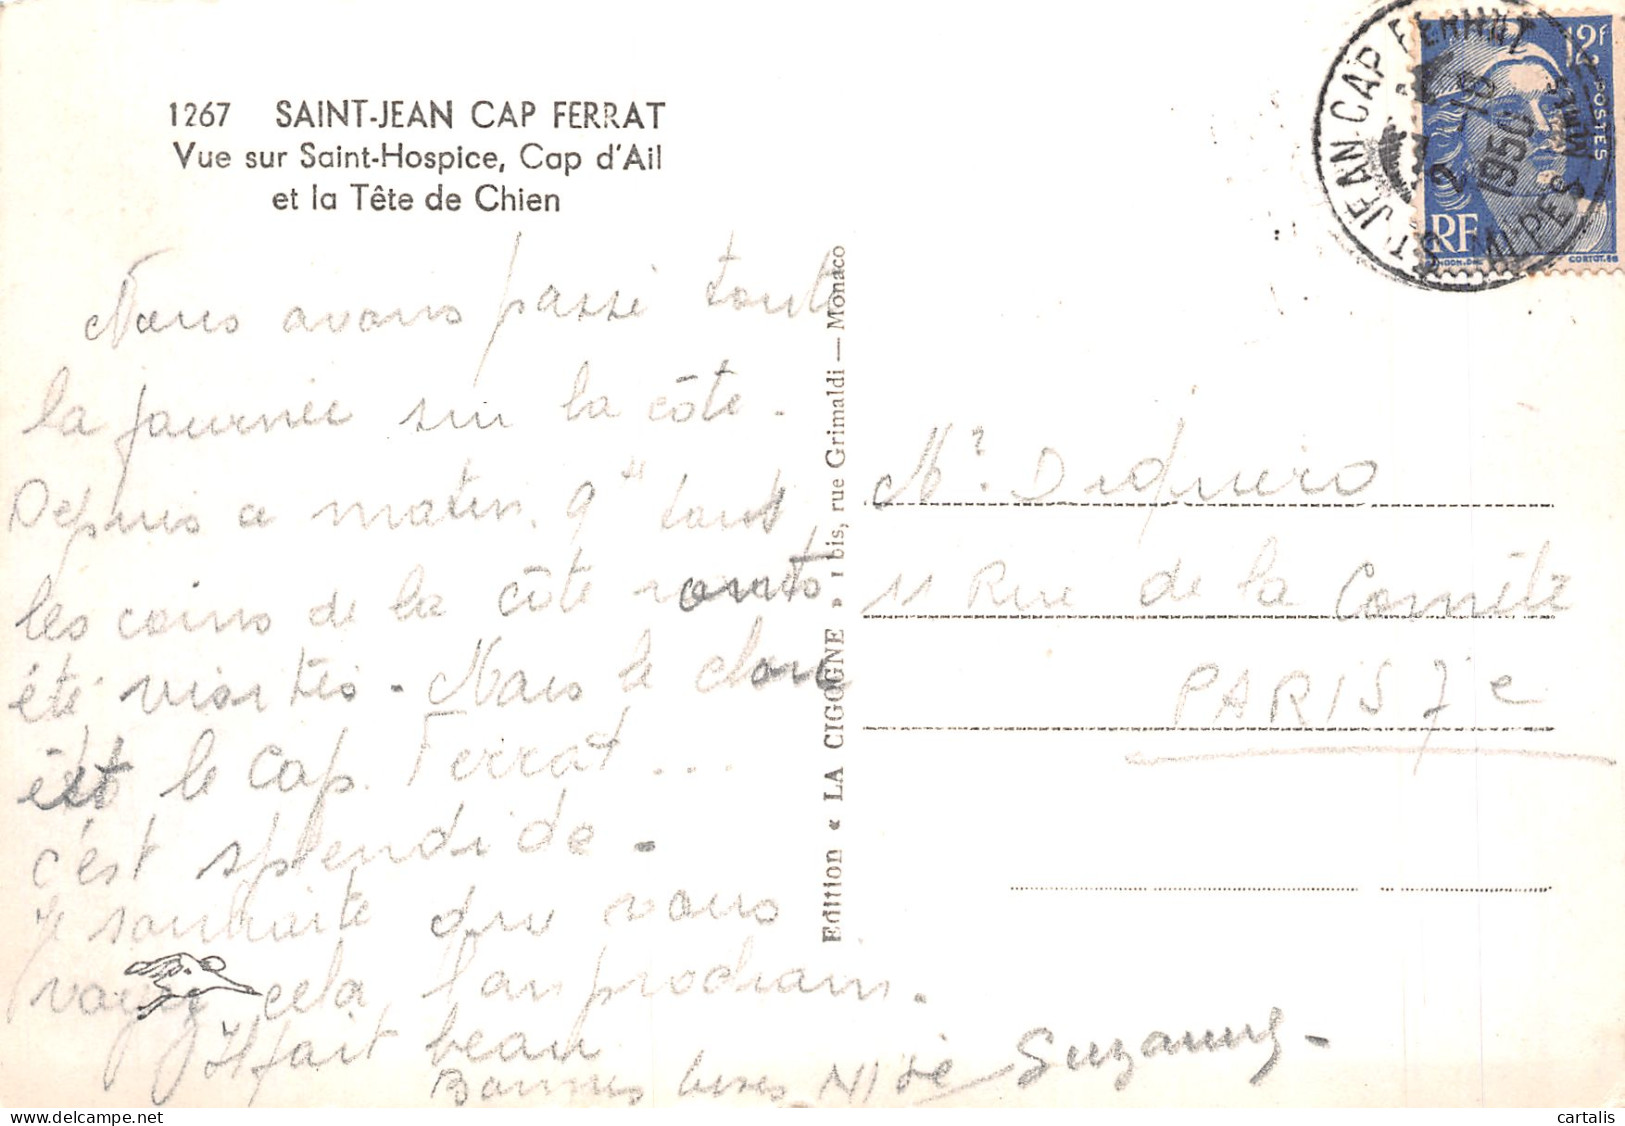 1267 SAINT-JEAN CAP FERRAT
Vue sur Saint-Hospice, Cap d'Ail
et la Tête de Chien
Nous avons passé toute
la journée sur la côte.
Depuis ce matin, tous
les coins de la côte ont
été visités. Mais le clou
est le Cap. Ferrat...
c'est splendide.
Je souhaite que vous
voyez cela, l'an prochain.
Il fait beau
Bonnes bises Suzanne
Edition « LA CIGOGNE » 1 bis, rue Grimaldi — Monaco
ST JEAN-CAP FERRAT
2 -10
1950
ALPES MMES
12F
POSTES
RF
CORTOT.
Mr.
11 Rue de la Comète
PARIS 7e
cartalis